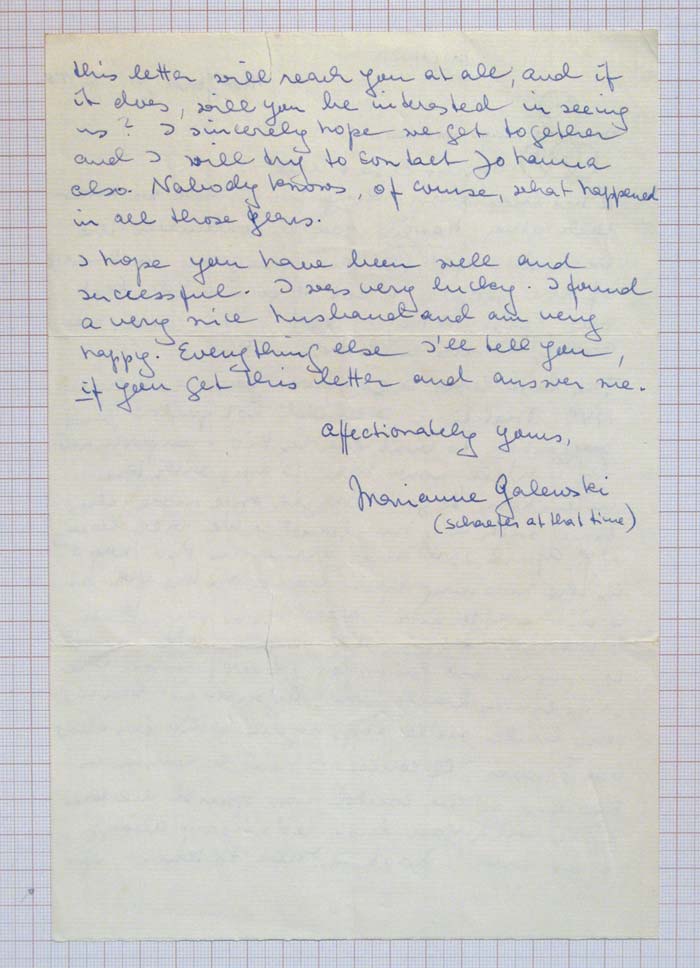 this letter will reach you at all, and if
it does, will you be interested in seeing
us? I sincerely hope we get together
and I will try to contact Johanna
also. Nobody knows, of course, what happened
in all those years.
I hope you have been well and
successful. I was very lucky. I found
a very nice husband and am very
happy. Everything else I'll tell you,
if you get this letter and answer me.
Affectionately yours,
Marianne Galewski
(Schaefer at that time)